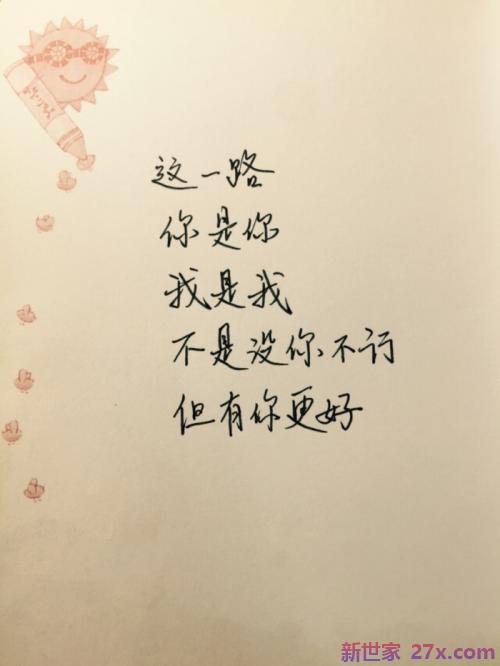 这一路
你是你
我是我
不是没你不行
但有你更好
新世家 27x.com